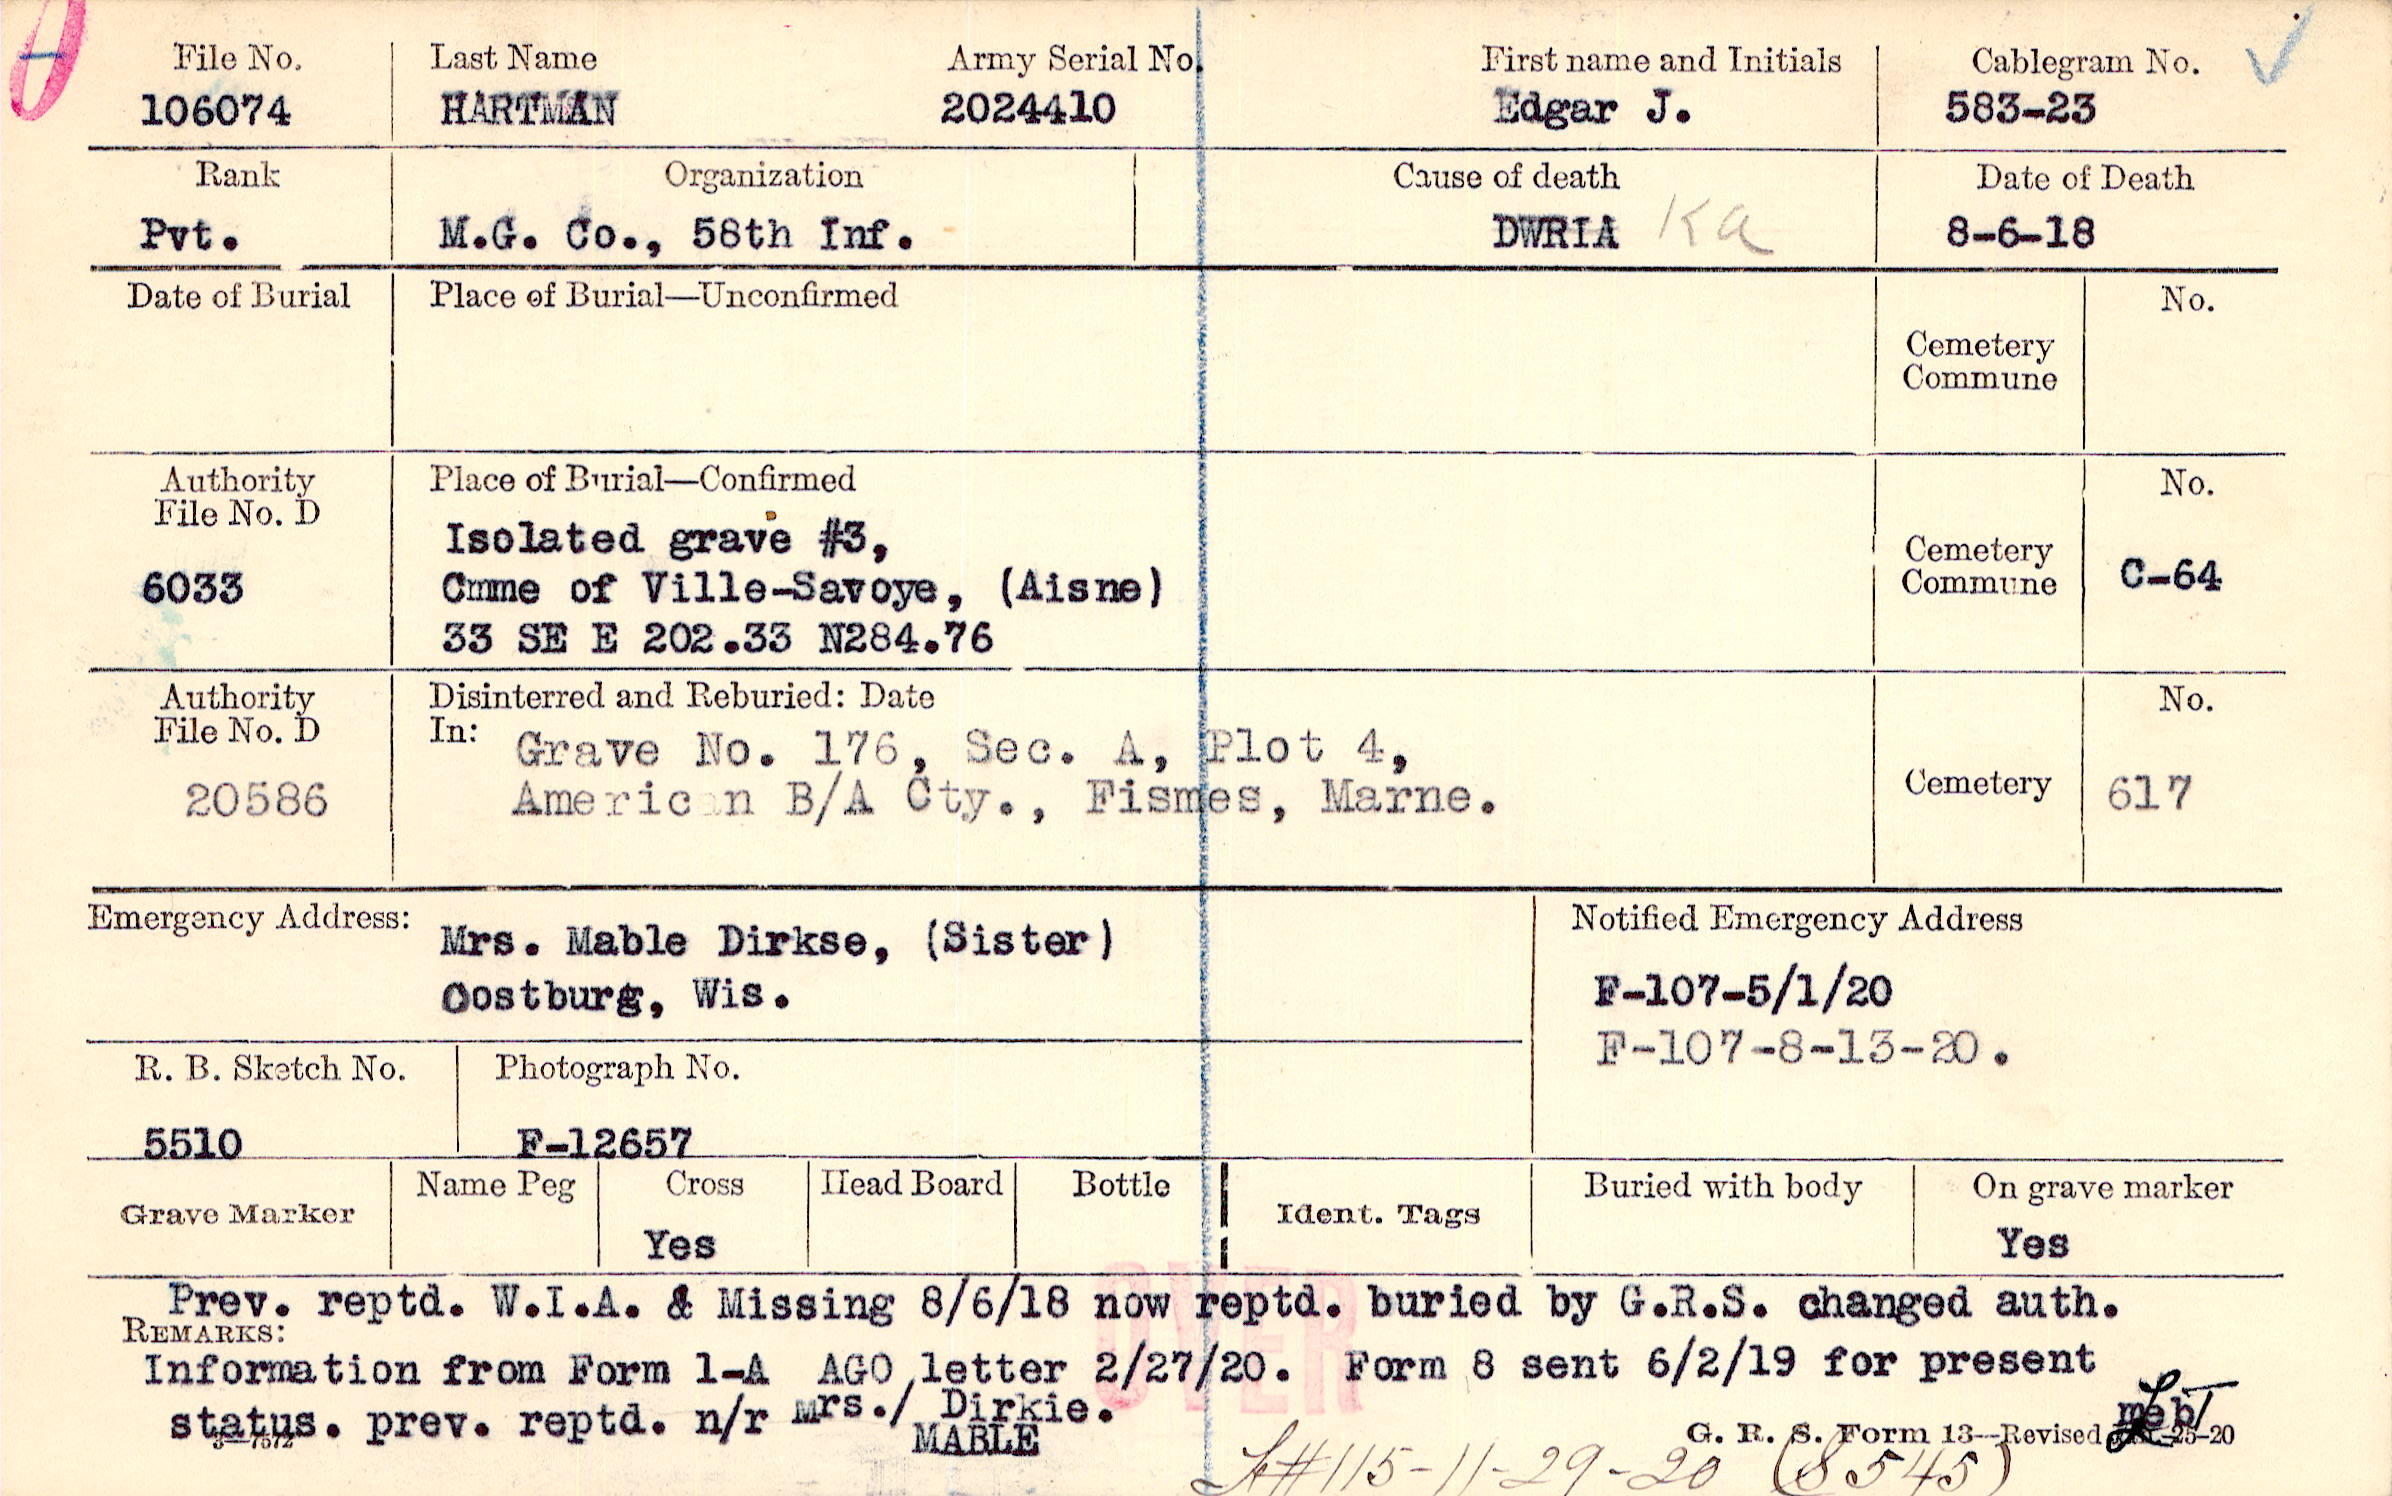 File No. Last Name Army Serial No. First name and Initials Cablegram No.
106074 HARTMAN 2024410 Edgar J. 583-23
Rank Organization Cause of death Date of Death
Pvt. M.G. Co., 58th Inf. DWRIA KA 8-6-18
Date of Burial Place of Burial—Unconfirmed No.
Cemetery
Commune
Authority Place of Burial—Confirmed No.
File No. D
Isolated grave #3,
Cemetery
6033 Cmme of Ville-Savoye, (Aisne) Commune C-64
33 SE E 202.33 N284.76
Authority Disinterred and Reburied: Date No.
File No. D In: Grave No. 176, Sec. A, Plot 4,
20586 American B/A Cty., Fismes, Marne. Cemetery 617
Emergency Address: Mrs. Mable Dirkse, (Sister) Notified Emergency Address
Oostburg, Wis. F-107-5/1/20
F-107-8-13-20.
R. B. Sketch No. Photograph No.
5510 F-12657
Grave Marker Name Peg Cross Head Board Bottle Ident. Tags Buried with body On grave marker
Yes Yes
Prev. reptd. W.I.A. & Missing 8/6/18 now reptd. buried by G.R.S. changed auth.
REMARKS:
OVER
Information from Form 1-A AGO letter 2/27/20. Form 8 sent 6/2/19 for present
status. prev. reptd. n/r Mrs./ Dirkie.
MABLE
3—7572
G. R. S. Form 13—Revised -25-20
#115-11-29-20 (8545)